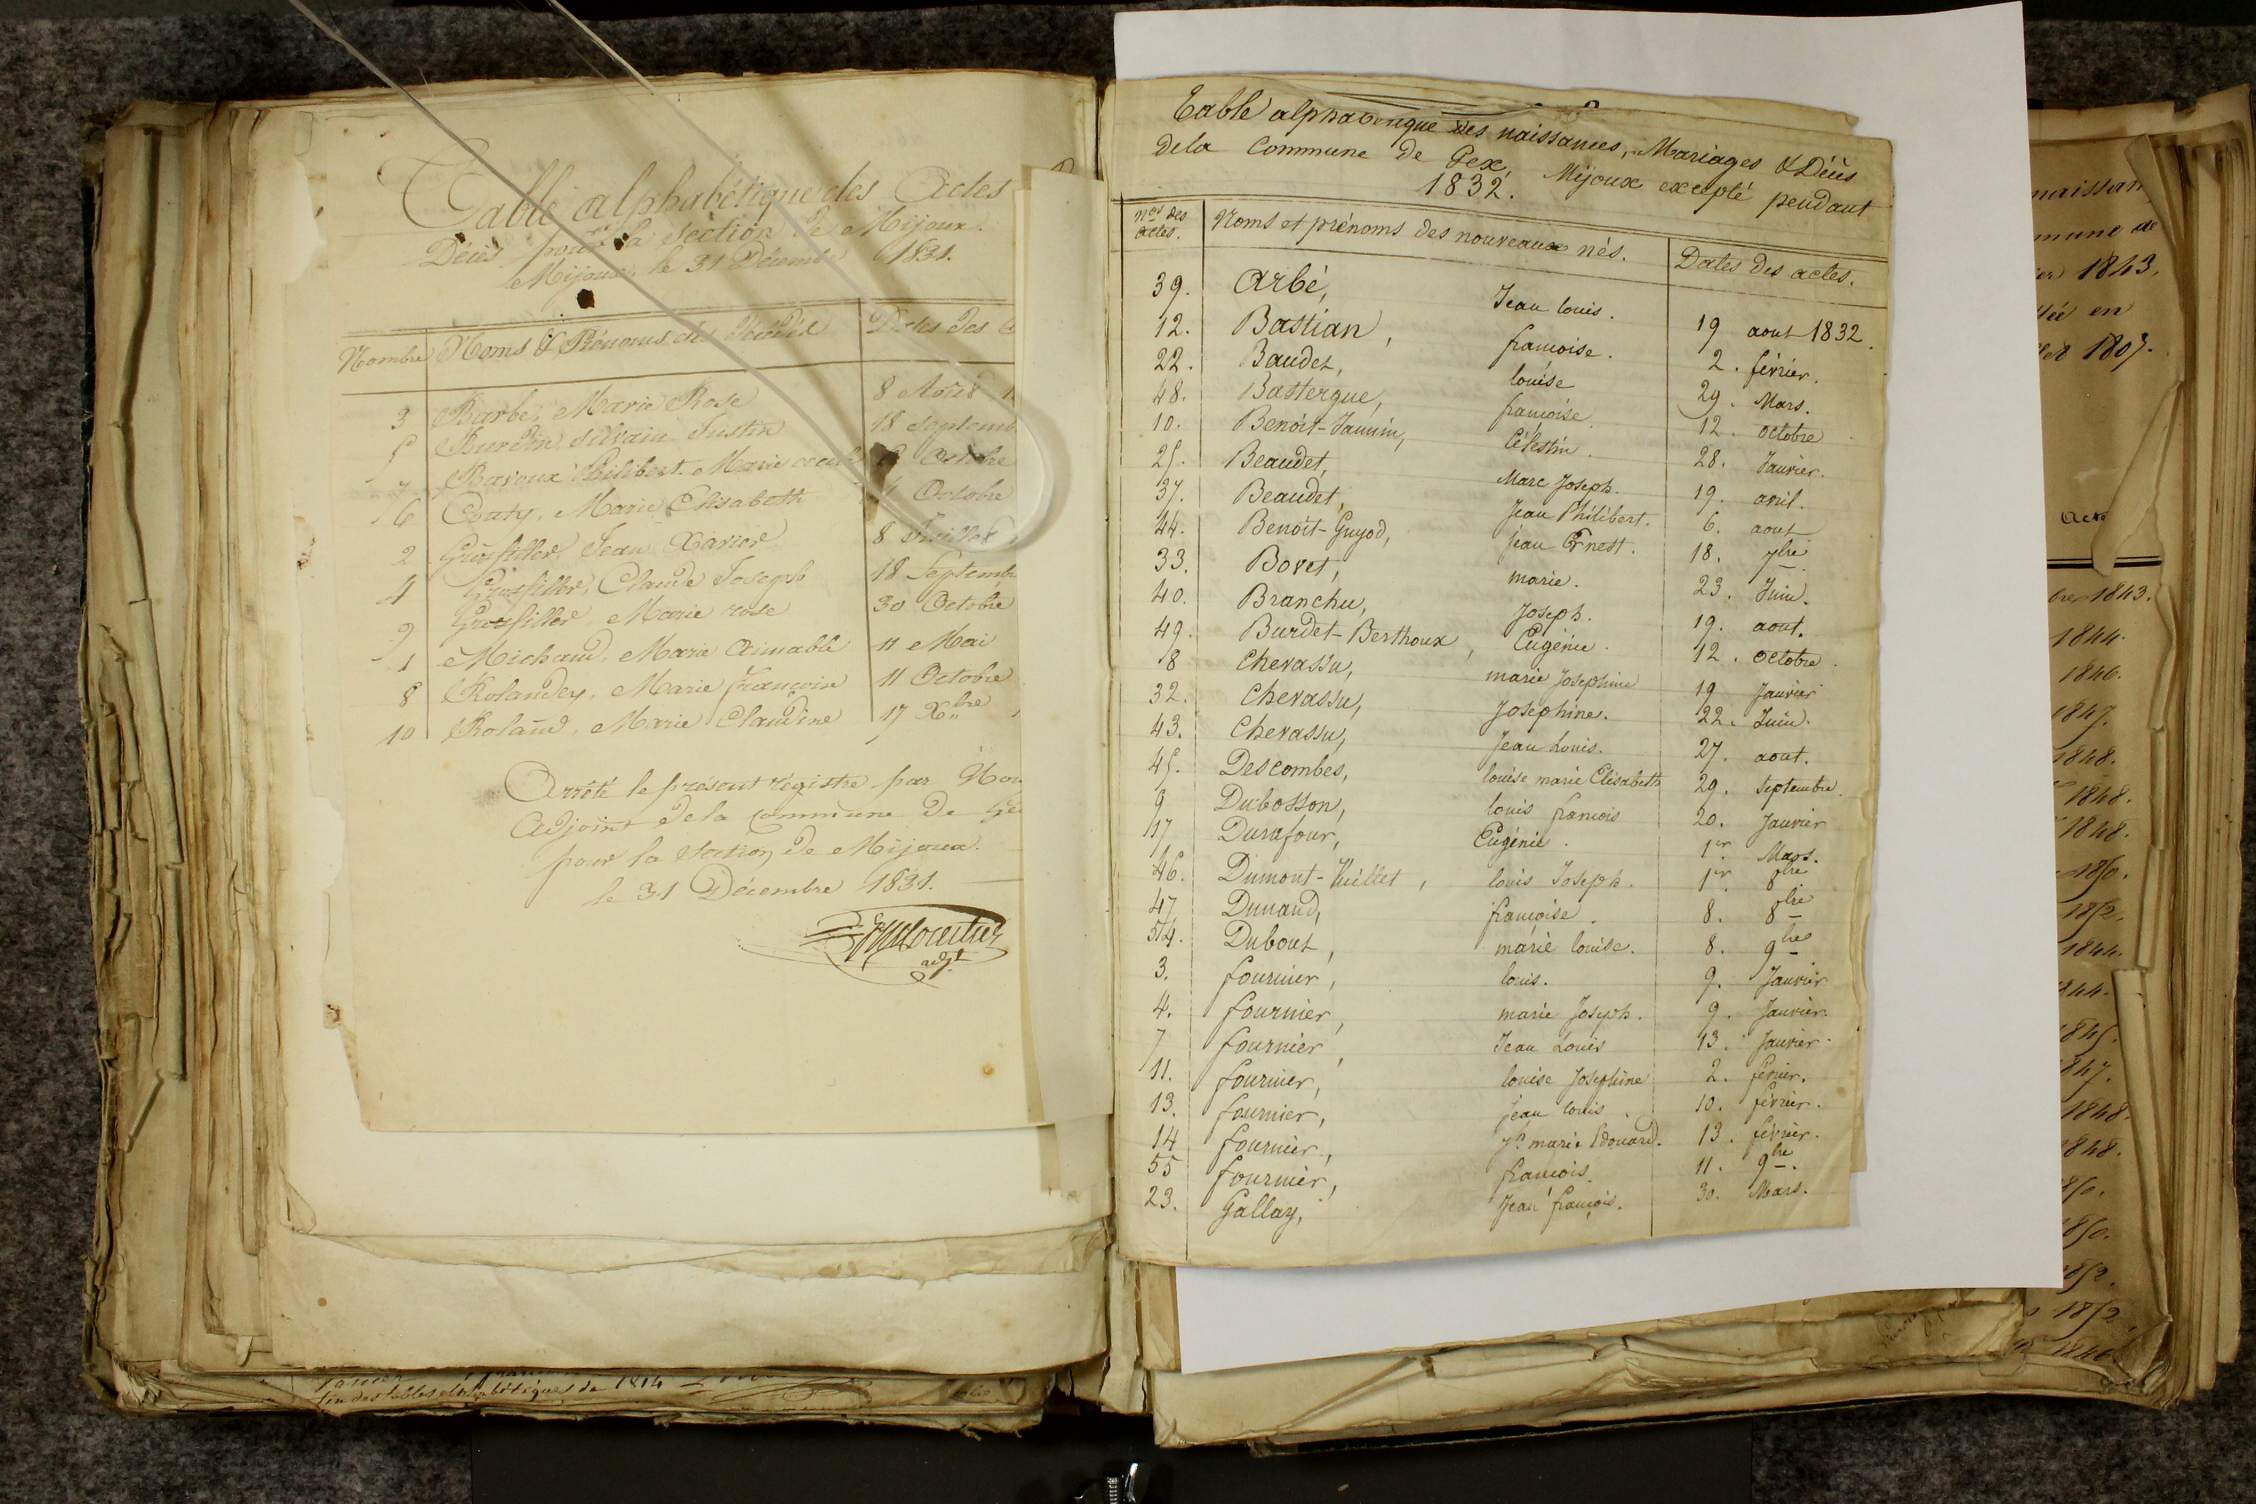 Table alphabétique des Actes
Décès pour la Section de Mijoux.
Mijoux, le 31 Décembre 1831.
Nombre Noms & Prénoms des Décédés Dates des
3 Barbe, Marie Rose 8 Août
5 Burdin Silvain Justin 18 Septemb
7 Bajoux Philibert Marie Octobre
6 Couty, Marie Elisabeth Octobre
2 Grosfiller Jean Xavier 8 Juillet
4 Grosfiller, Claude Joseph 18 Septembr
9 Grosfiller Marie rose 30 Octobre
1 Michaud, Marie Aimable 11 Mai
8 Rolandey, Marie françoise 11 Octobre
10 Roland, Marie Claudine 17 Xbre
Arrêté le présent registre par Nou
Adjoint de la Commune de Ge
pour la Section de Mijoux.
le 31 Décembre 1831.
adjt
fin des tables alphabétiques de 1814
Table alphabétique des naissances, Mariages & Décès
de la Commune de Gex, Mijoux excepté pendant
1832.
Nos des actes. Noms et prénoms des nouveaux nés. Dates des actes.
39. Arbé, Jean louis. 19 aout 1832.
12. Bastian, françoise. 2. février.
22. Baudet, louise 29. Mars.
48. Bastergue, françoise. 12. octobre
10. Benoit-Jannin, Célestin. 28. Janvier.
25. Beaudet, Marc Joseph. 19. avril.
37. Beaudet, Jean Philibert. 6. aout
44. Benoit-Guyod, jean Ernest. 18. 7bre
33. Bovet, marie. 23. Juin.
40. Branchu, Joseph. 19. aout.
49. Burdet-Berthoux, Eugénie. 12. octobre.
8 Chevassu, marie Josephine 19 Janvier
32. Chevassu, Joséphine. 22. Juin.
43. Chevassu, Jean Louis. 27. aout.
45. Descombes, louise marie Elisabeth 29. Septembre.
9 Dubosson, louis françois 20. Janvier
17 Durafour, Eugénie. 1er Mars.
46. Dumont-Vuillet, louis Joseph. 1er 8bre
47 Dunand, françoise. 8. 8bre
54. Dubout, marie louise. 8. 9bre
3. fournier, louis. 9. Janvier
4. fournier, marie Joseph. 9. Janvier.
7 fournier, Jean Louis 13. Janvier.
11. fournier, louise Joséphine 2. février.
13. fournier, jean louis. 10. février.
14 fournier, jh marie Edouard. 13. février.
55 fournier, françois. 11. 9bre.
23. Gallay, Jean françois. 30. Mars.
naissan
mune de
1843.
en
1807.
Acte
bre 1843.
1844.
1846.
1847.
1848.
1848.
1848.
1850.
1852.
1844.
1845.
1848.
1852.